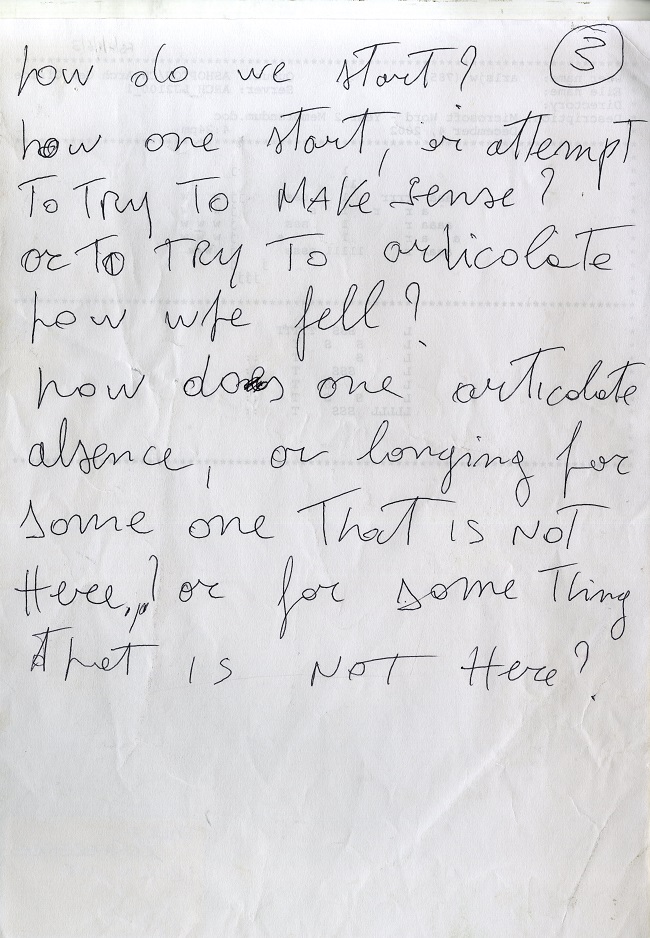 3
how do we start?
how one start, or attempt
To TRY To MAKe sense?
or To TRY To articolate
how we fell?
how does one articolate
absence, or longing for
some one That is NOT
Here,? or for some Thing
That is NOT Here?